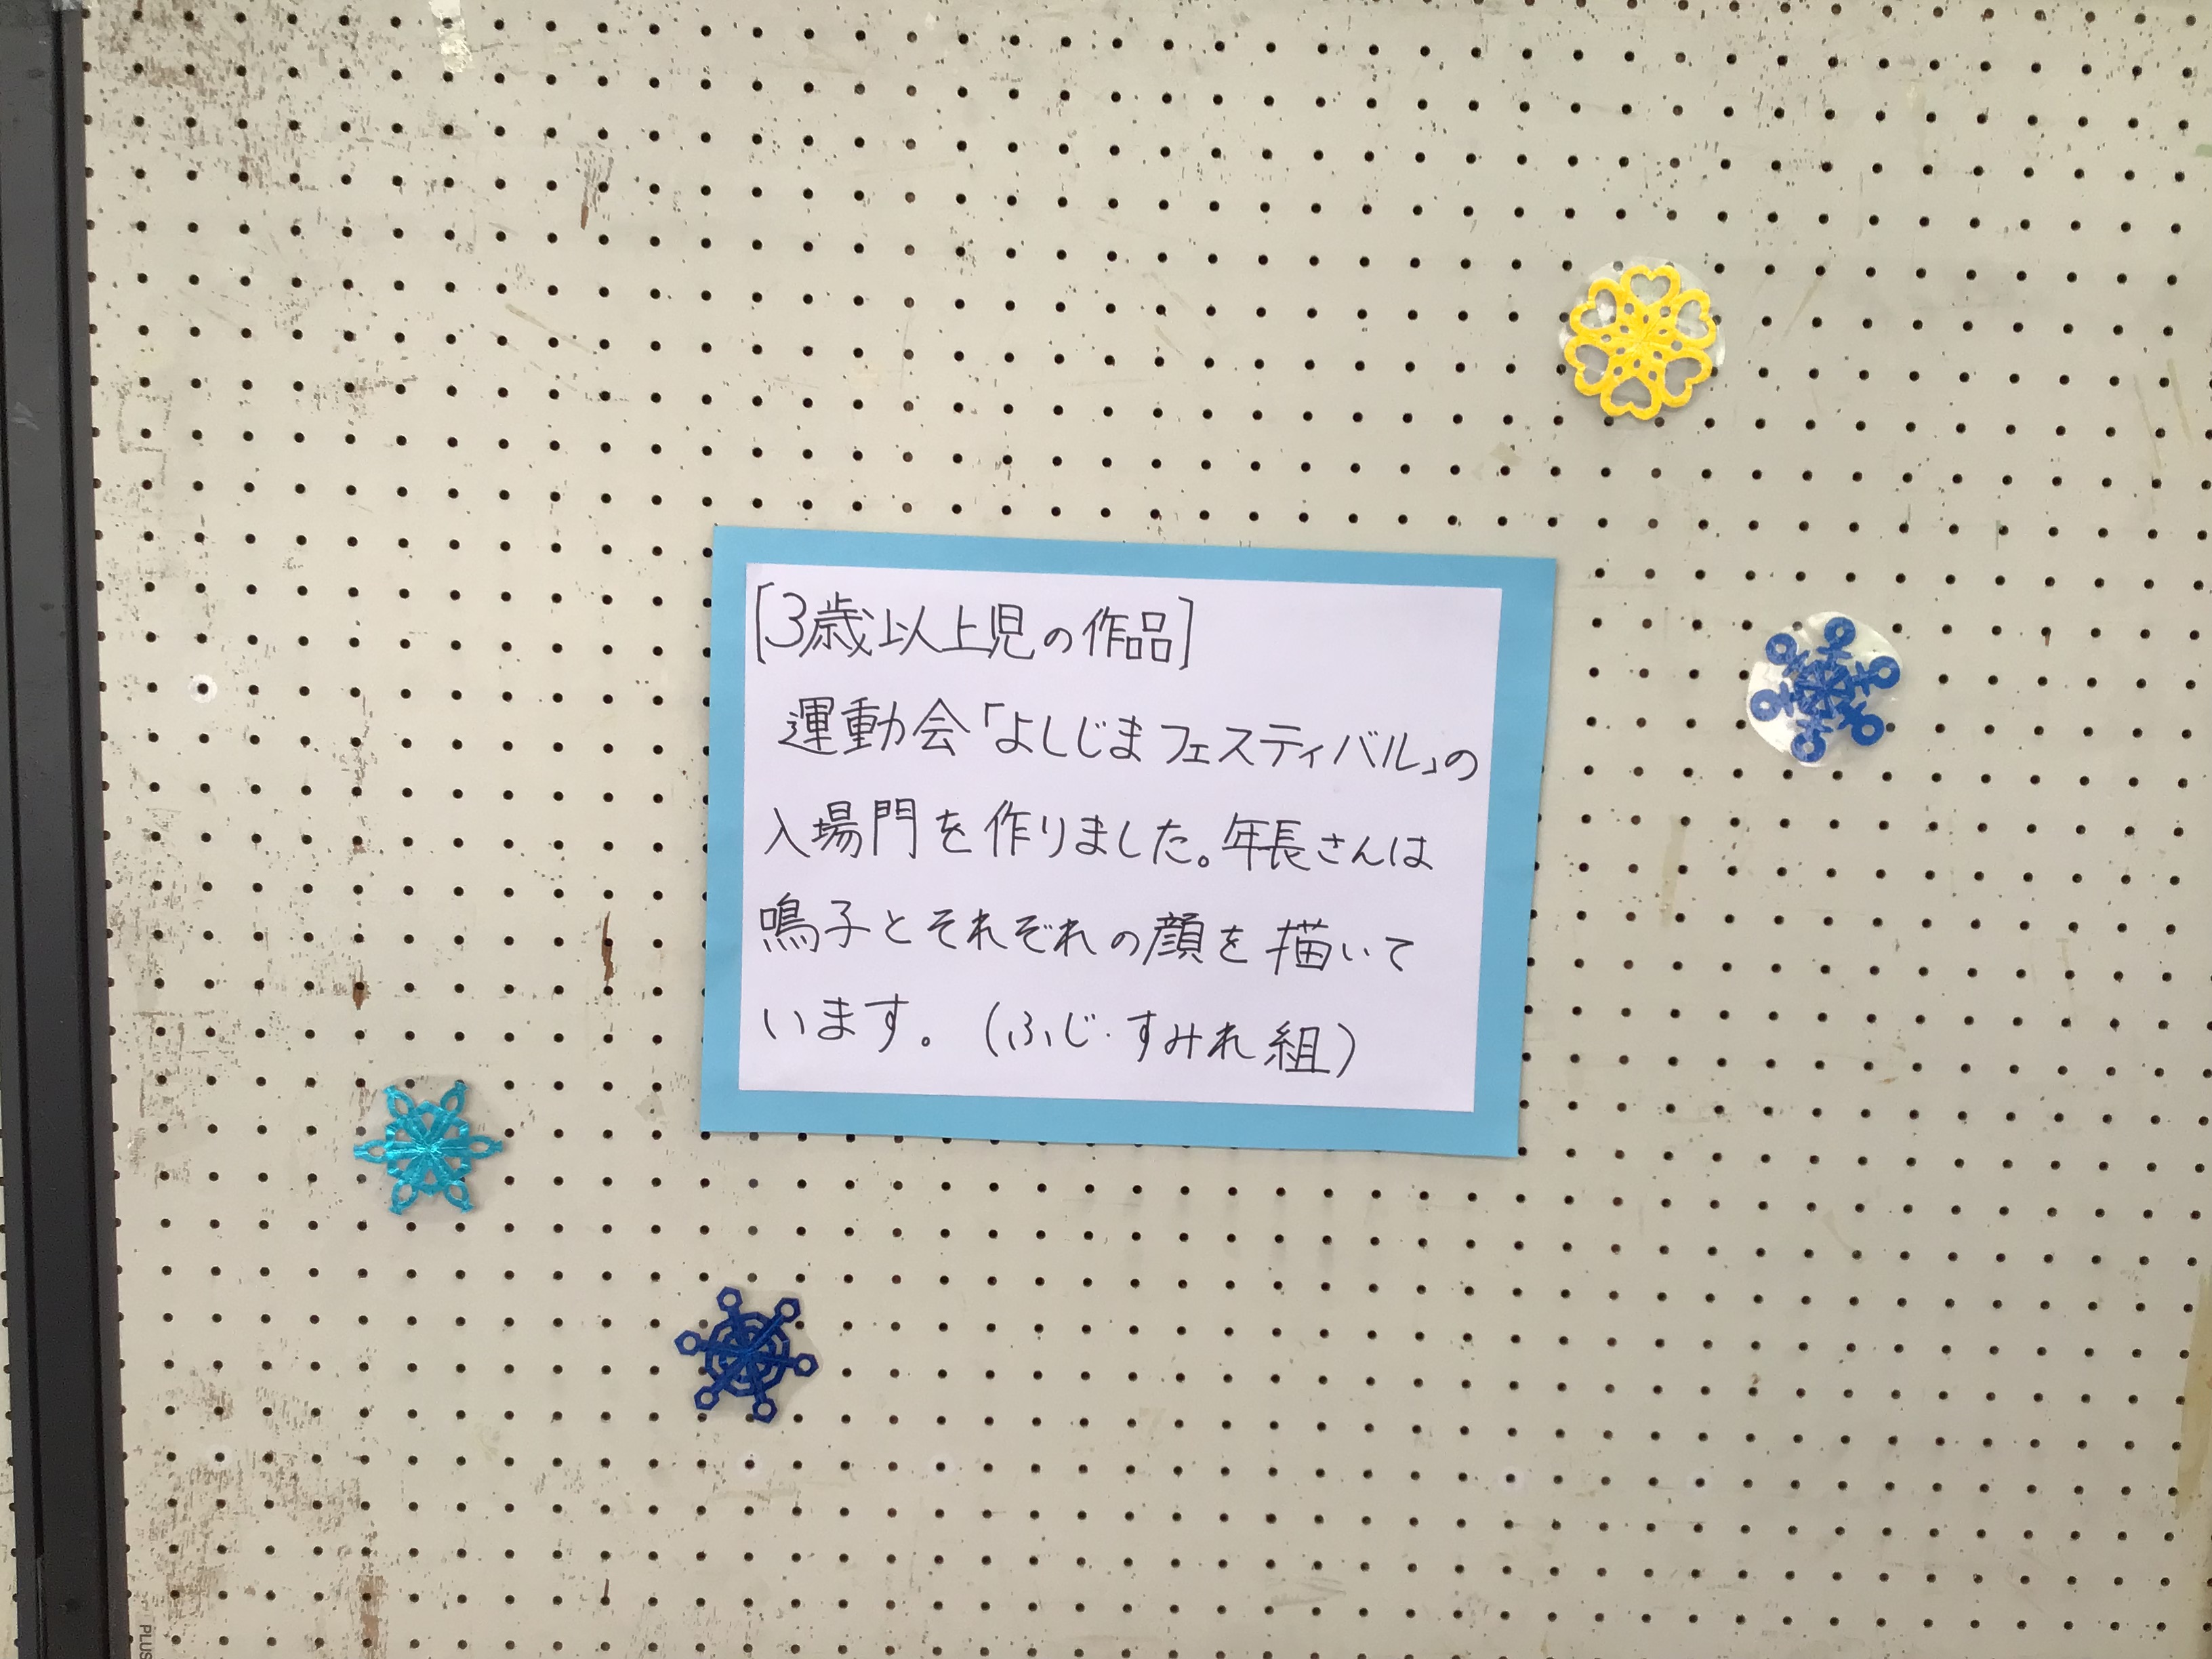 [3歳以上児の作品]
運動会「よしじまフェスティバル」の
入場門を作りました。年長さんは
鳴子とそれぞれの顔を描いて
います。(ふじ・すみれ組)
PLUS